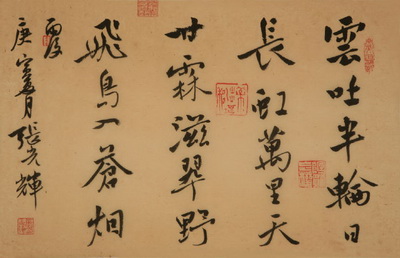 雲吐半輪日
長虹萬里天
甘霖滋翠野
飛鳥入蒼烟
霞
庚寅夏月張光輝